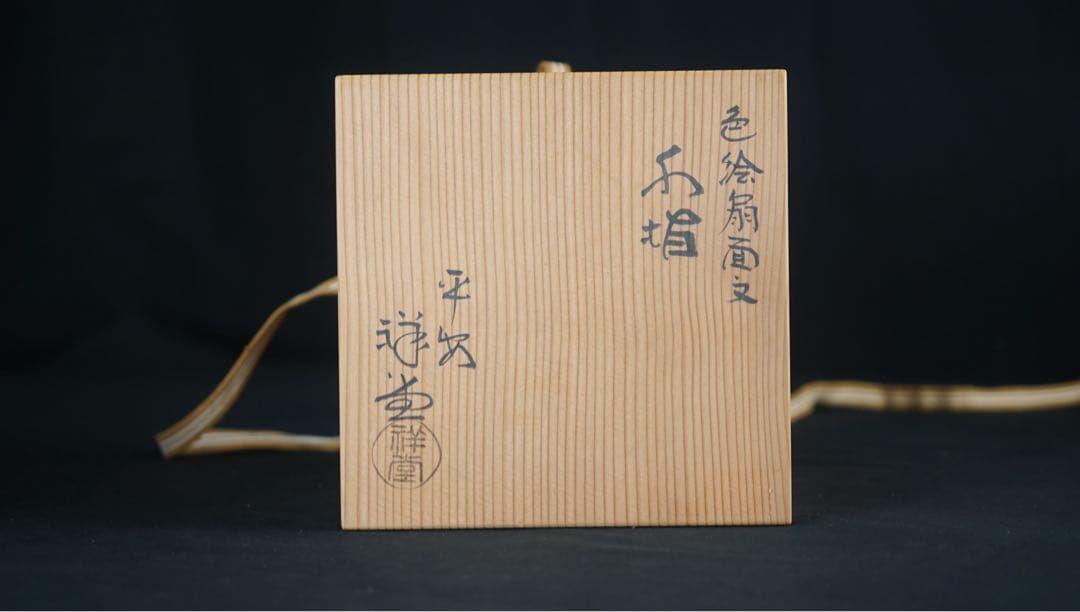 色絵扇面文
水指
平安
祥堂
祥堂